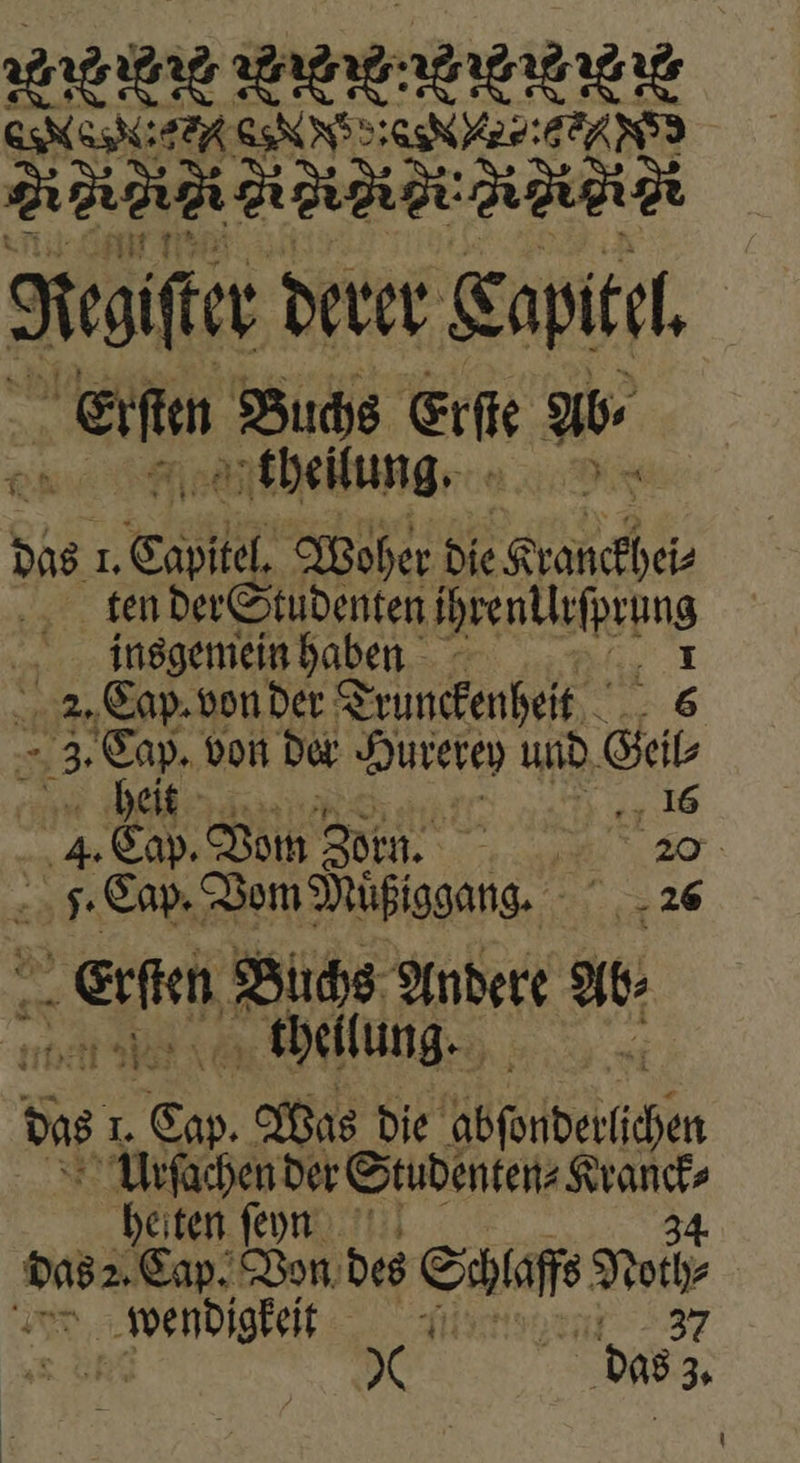 Regiſter derer Capitel.
Erſten Buchs Erſte Ab⸗
theilung.
das 1. Capitel. Woher die Kranckhei⸗
ten der Studenten ihren Urſprung
insgemein haben 1
2. Cap. von der Trunckenheit 6
3. Cap. von der Hurerey und Geil⸗
heit 16
4. Cap. Vom Zorn. 20
5. Cap. Vom Muͤßiggang. 26
Erſten Buchs Andere Ab⸗
theilung.
das 1. Cap. Was die abſonderlichen
Urſachen der Studenten⸗Kranck⸗
heiten ſeyn 34
das 2. Cap. Von des Schlaffs Noth⸗
wendigkeit 37
)( das 3.